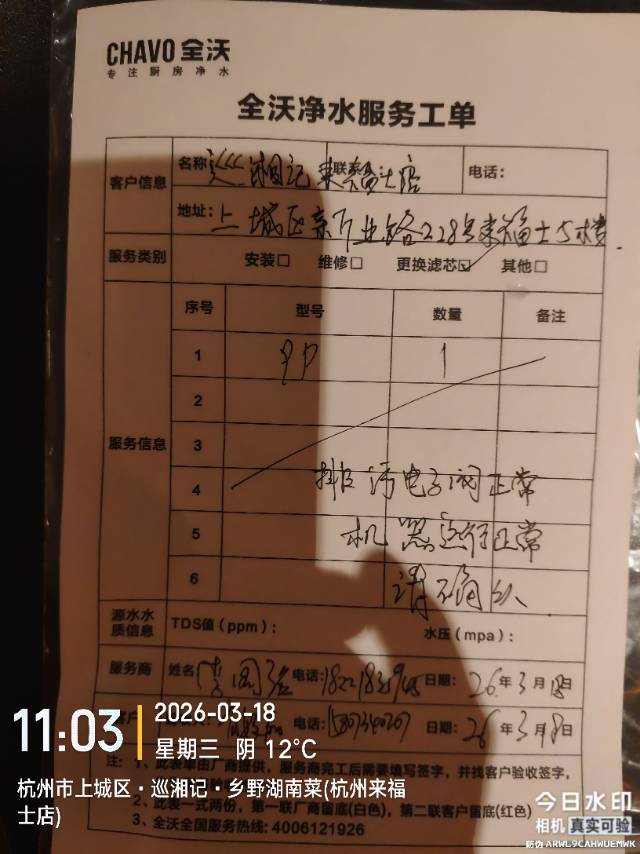 CHAVO 全沃
专注厨房净水
全沃净水服务工单
客户信息
名称 巡湘记 联系 来福士店 电话：
地址：上城区 路228号来福士5楼
服务类别 安装□ 维修□ 更换滤芯☑ 其他□
服务信息
序号 型号 数量 备注
1 PP 1
2
3
4 排污电子阀正常
5 机器运行正常
6 请确认
源水水质信息 TDS值（ppm）： 水压（mpa）：
服务商 姓名 电话： 日期：26年3月18日
电话： 日期：26年3月18日
注：1、此表单由厂商提供，服务商完工后需要填写签字，并找客户验收签字，
2、此表一式两份，第一联厂商留底(白色)，第二联客户留底(红色)
3、全沃全国服务热线：4006121926
11:03
2026-03-18
星期三 阴 12°C
杭州市上城区·巡湘记·乡野湖南菜(杭州来福士店)
今日水印
相机 真实可验
防伪 ARWL9CAHWUEMWK